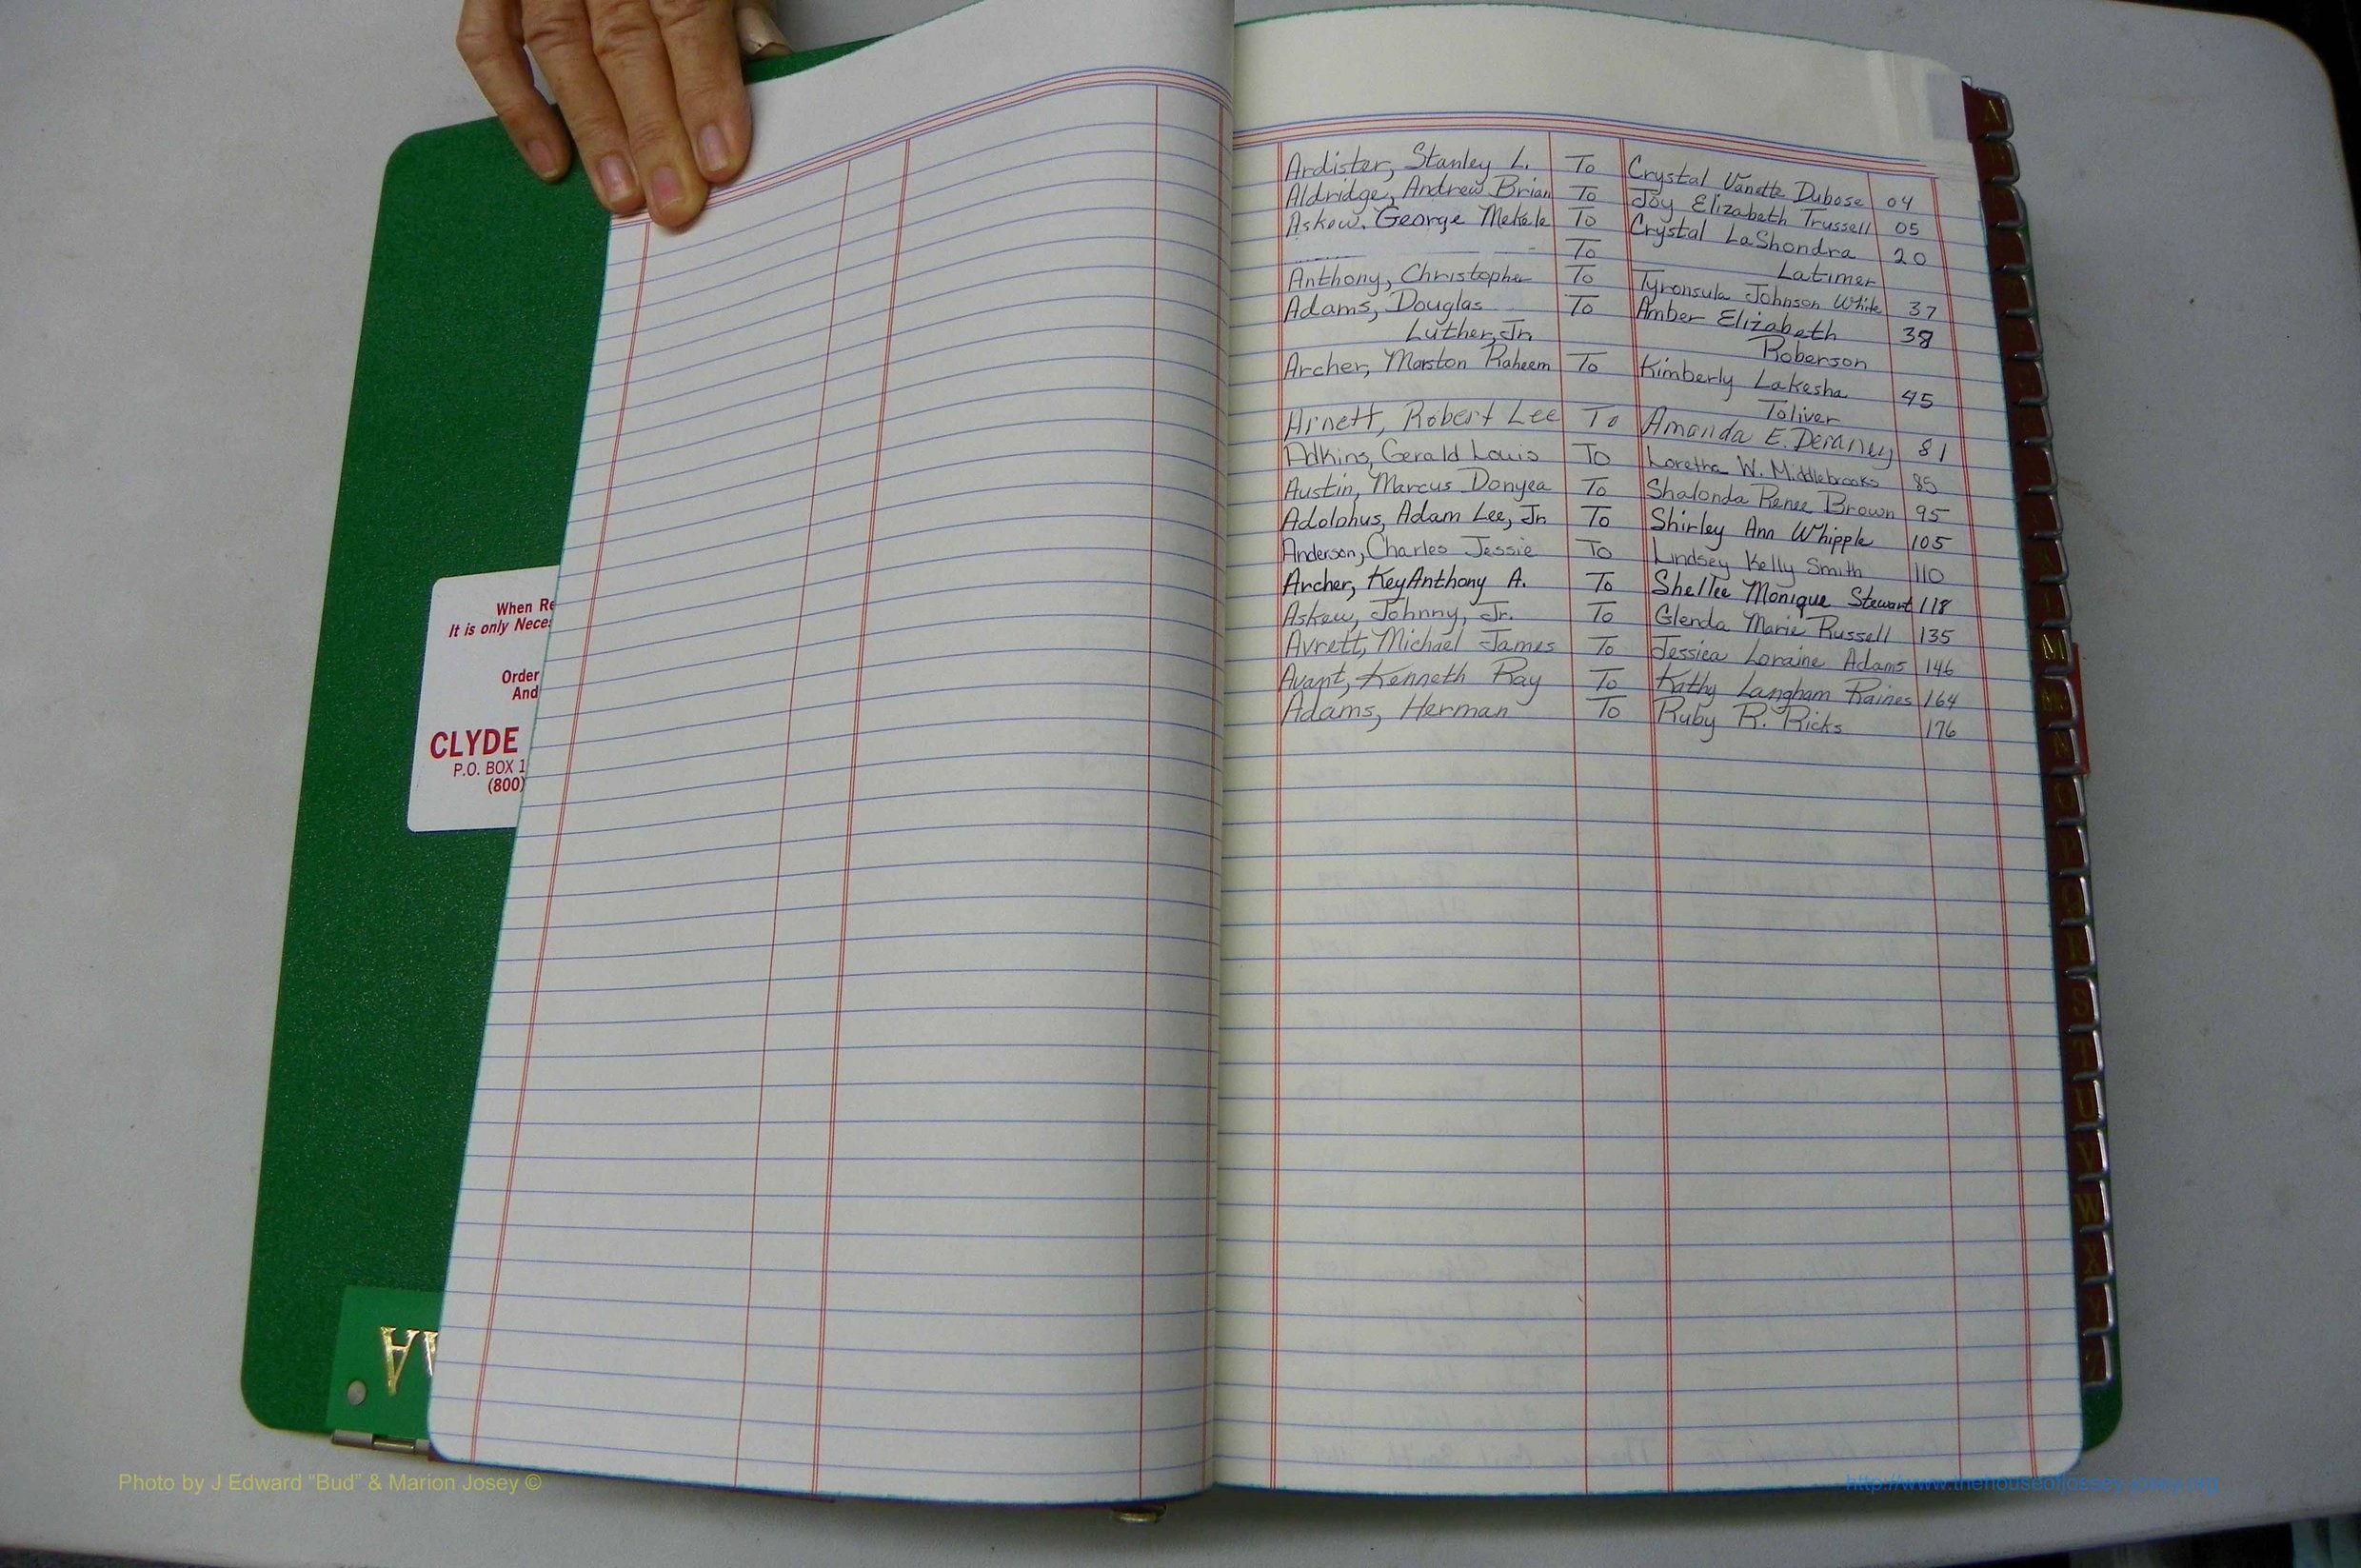 Ardister, Stanley L. To Crystal Vanette Dubose 04
Aldridge, Andrew Brian To Joy Elizabeth Trussell 05
Askew, George Mekele To Crystal LaShondra 20
To Latimer
Anthony, Christopher To Tyronsula Johnson White 37
Adams, Douglas To Amber Elizabeth 38
Luther, Jr. Roberson
Archer, Marston Raheem To Kimberly Lakesha 45
Toliver
Arnett, Robert Lee To Amanda E. Deraney 81
Adkins, Gerald Louis To Loretha W. Middlebrooks 85
Austin, Marcus Donyea To Shalonda Renee Brown 95
Adolphus, Adam Lee, Jr. To Shirley Ann Whipple 105
Anderson, Charles Jessie To Lindsey Kelly Smith 110
Archer, KeyAnthony A. To Shellee Monique Stewart 118
Askew, Johnny, Jr. To Glenda Marie Russell 135
Avrett, Michael James To Jessica Loraine Adams 146
Avant, Kenneth Ray To Kathy Langham Raines 164
Adams, Herman To Ruby R. Ricks 176
When Re
It is only Neces
Order
And
CLYDE
P.O. BOX 1
(800)
A
M
N
O
P
Q
R
S
T
U
V
W
X
Y
Z
Photo by J Edward “Bud” & Marion Josey ©
http://www.thehouseofjossey-josey.org